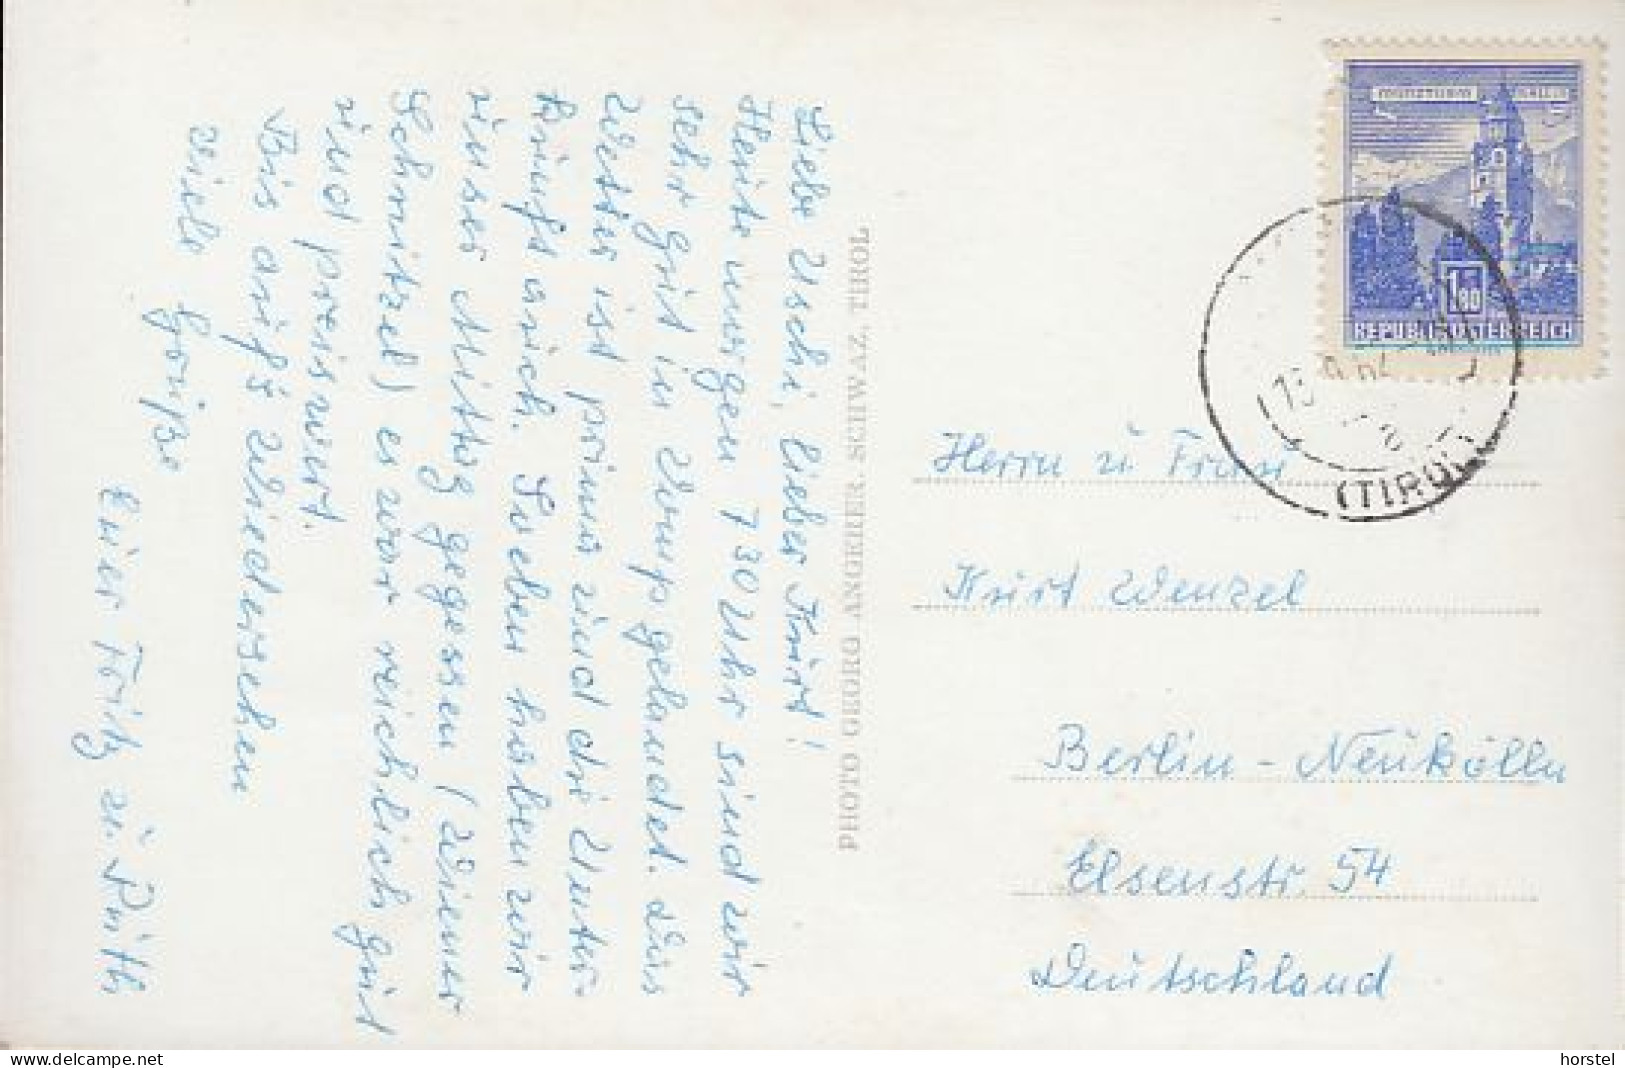 Liebe Uschi, lieber Kurt!
Heute morgen 7 30 Uhr sind wir
sehr gut in Vomp gelandet. Das
Wetter ist prima und die Unter-
kunft auch. Soeben haben wir
unser Mittag gegessen (Wiener
Schnitzel) es war reichlich gut
und preiswert.
Bis auf's Wiedersehen
viele Grüße
Euer Fritz u. Ruth
PHOTO GEORG ANGERER, SCHWAZ, TIROL
MÜNZTURM HALL i. T.
1.80
REPUBLIK ÖSTERREICH
(TIROL)
Herrn u Frau
Kurt Wenzel
Berlin - Neukölln
Elsenstr. 54
Deutschland
www.delcampe.net
horstel